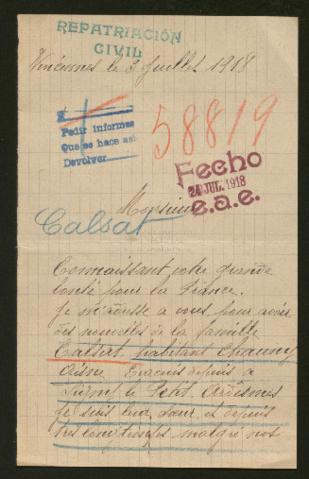 REPATRIACIÓN
CIVIL
Vincennes le 3 Juillet 1918
Pedir informes
Que se hace así
Devolver
58819
Fecho
24 JUL. 1918
e.a.e.
Monsieur
Calsat
Connaissant votre grande
bonté pour la France.
Je m'adresse a vous pour avoir
des nouvelles de la famille
Calsat, habitant Chauny
Aisne Evacués depuis a
Signy le Petit. Ardennes
Je suis leur sœur, et depuis
tres longtemps malgré nos